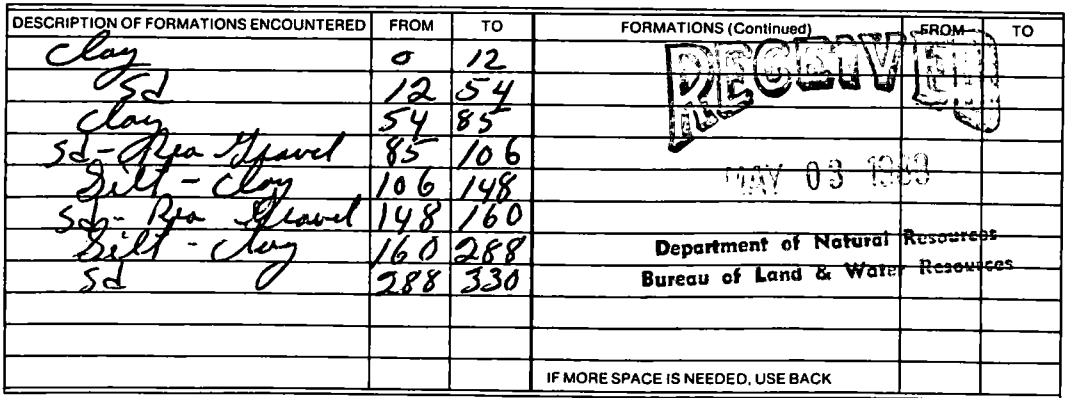 DESCRIPTION OF FORMATIONS ENCOUNTERED FROM TO FORMATIONS (Continued) FROM TO
Clay 0 12
Sd 12 54
Clay 54 85
Sd - Pea Gravel 85 106
Silt - Clay 106 148
Sd - Pea Gravel 148 160
Silt - Clay 160 288
Sd 288 330
RECEIVED
MAY 03
Department of Natural Resources
Bureau of Land & Water Resources
IF MORE SPACE IS NEEDED, USE BACK